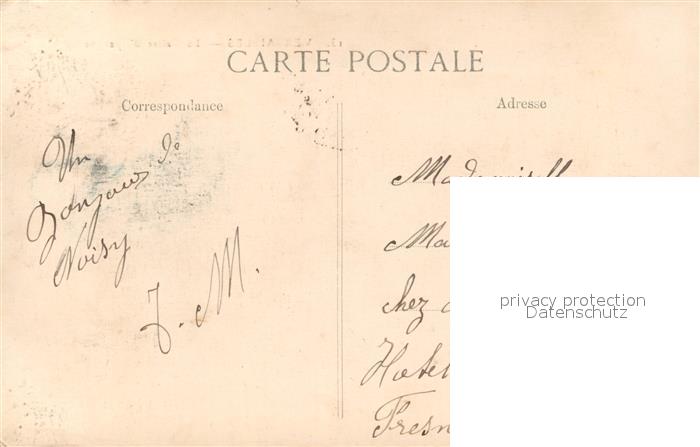 CARTE POSTALE
Correspondance
Adresse
Un
Bonjour de
Noisy
J. M.
Mademoisell
Ma
chez
Hotel
Fresn
privacy protection
Datenschutz